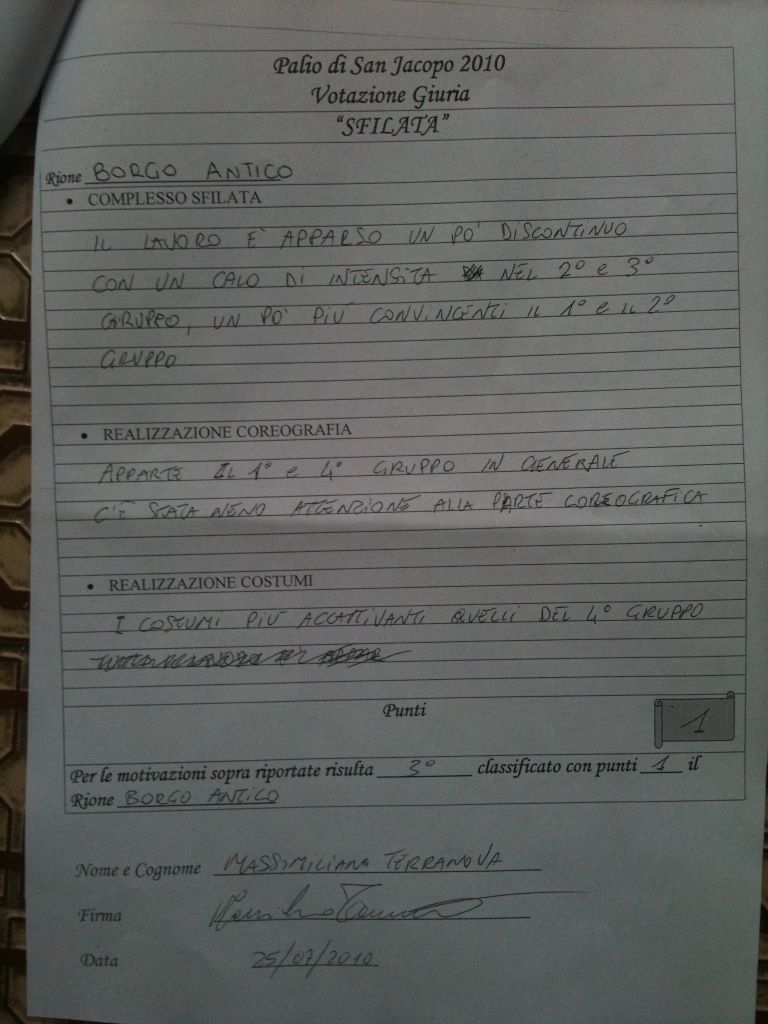 Palio di San Jacopo 2010
Votazione Giuria
"SFILATA"
Rione BORGO ANTICO
• COMPLESSO SFILATA
IL LAVORO E' APPARSO UN PO' DISCONTINUO
CON UN CALO DI INTENSITA NEL 2° e 3°
GRUPPO, UN PO' PIU' CONVINCENTI IL 1° e IL 2°
GRUPPO
• REALIZZAZIONE COREOGRAFIA
APPARTE IL 1° e 4° GRUPPO IN GENERALE
C'È STATA MENO ATTENZIONE ALLA PARTE COREOGRAFICA
• REALIZZAZIONE COSTUMI
I COSTUMI PIU' ACCATTIVANTI QUELLI DEL 4° GRUPPO
Punti
1
Per le motivazioni sopra riportate risulta 3° classificato con punti 1 il
Rione BORGO ANTICO
Nome e Cognome MASSIMILIANO TERRANOVA
Firma
Data 25/07/2010